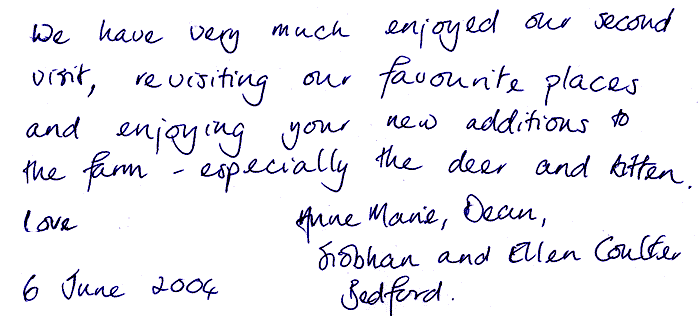 We have very much enjoyed our second
visit, revisiting our favourite places
and enjoying your new additions to
the farm - especially the deer and kitten.
love Anne Marie, Dean,
Siobhan and Ellen Coulter
6 June 2004 Bedford.